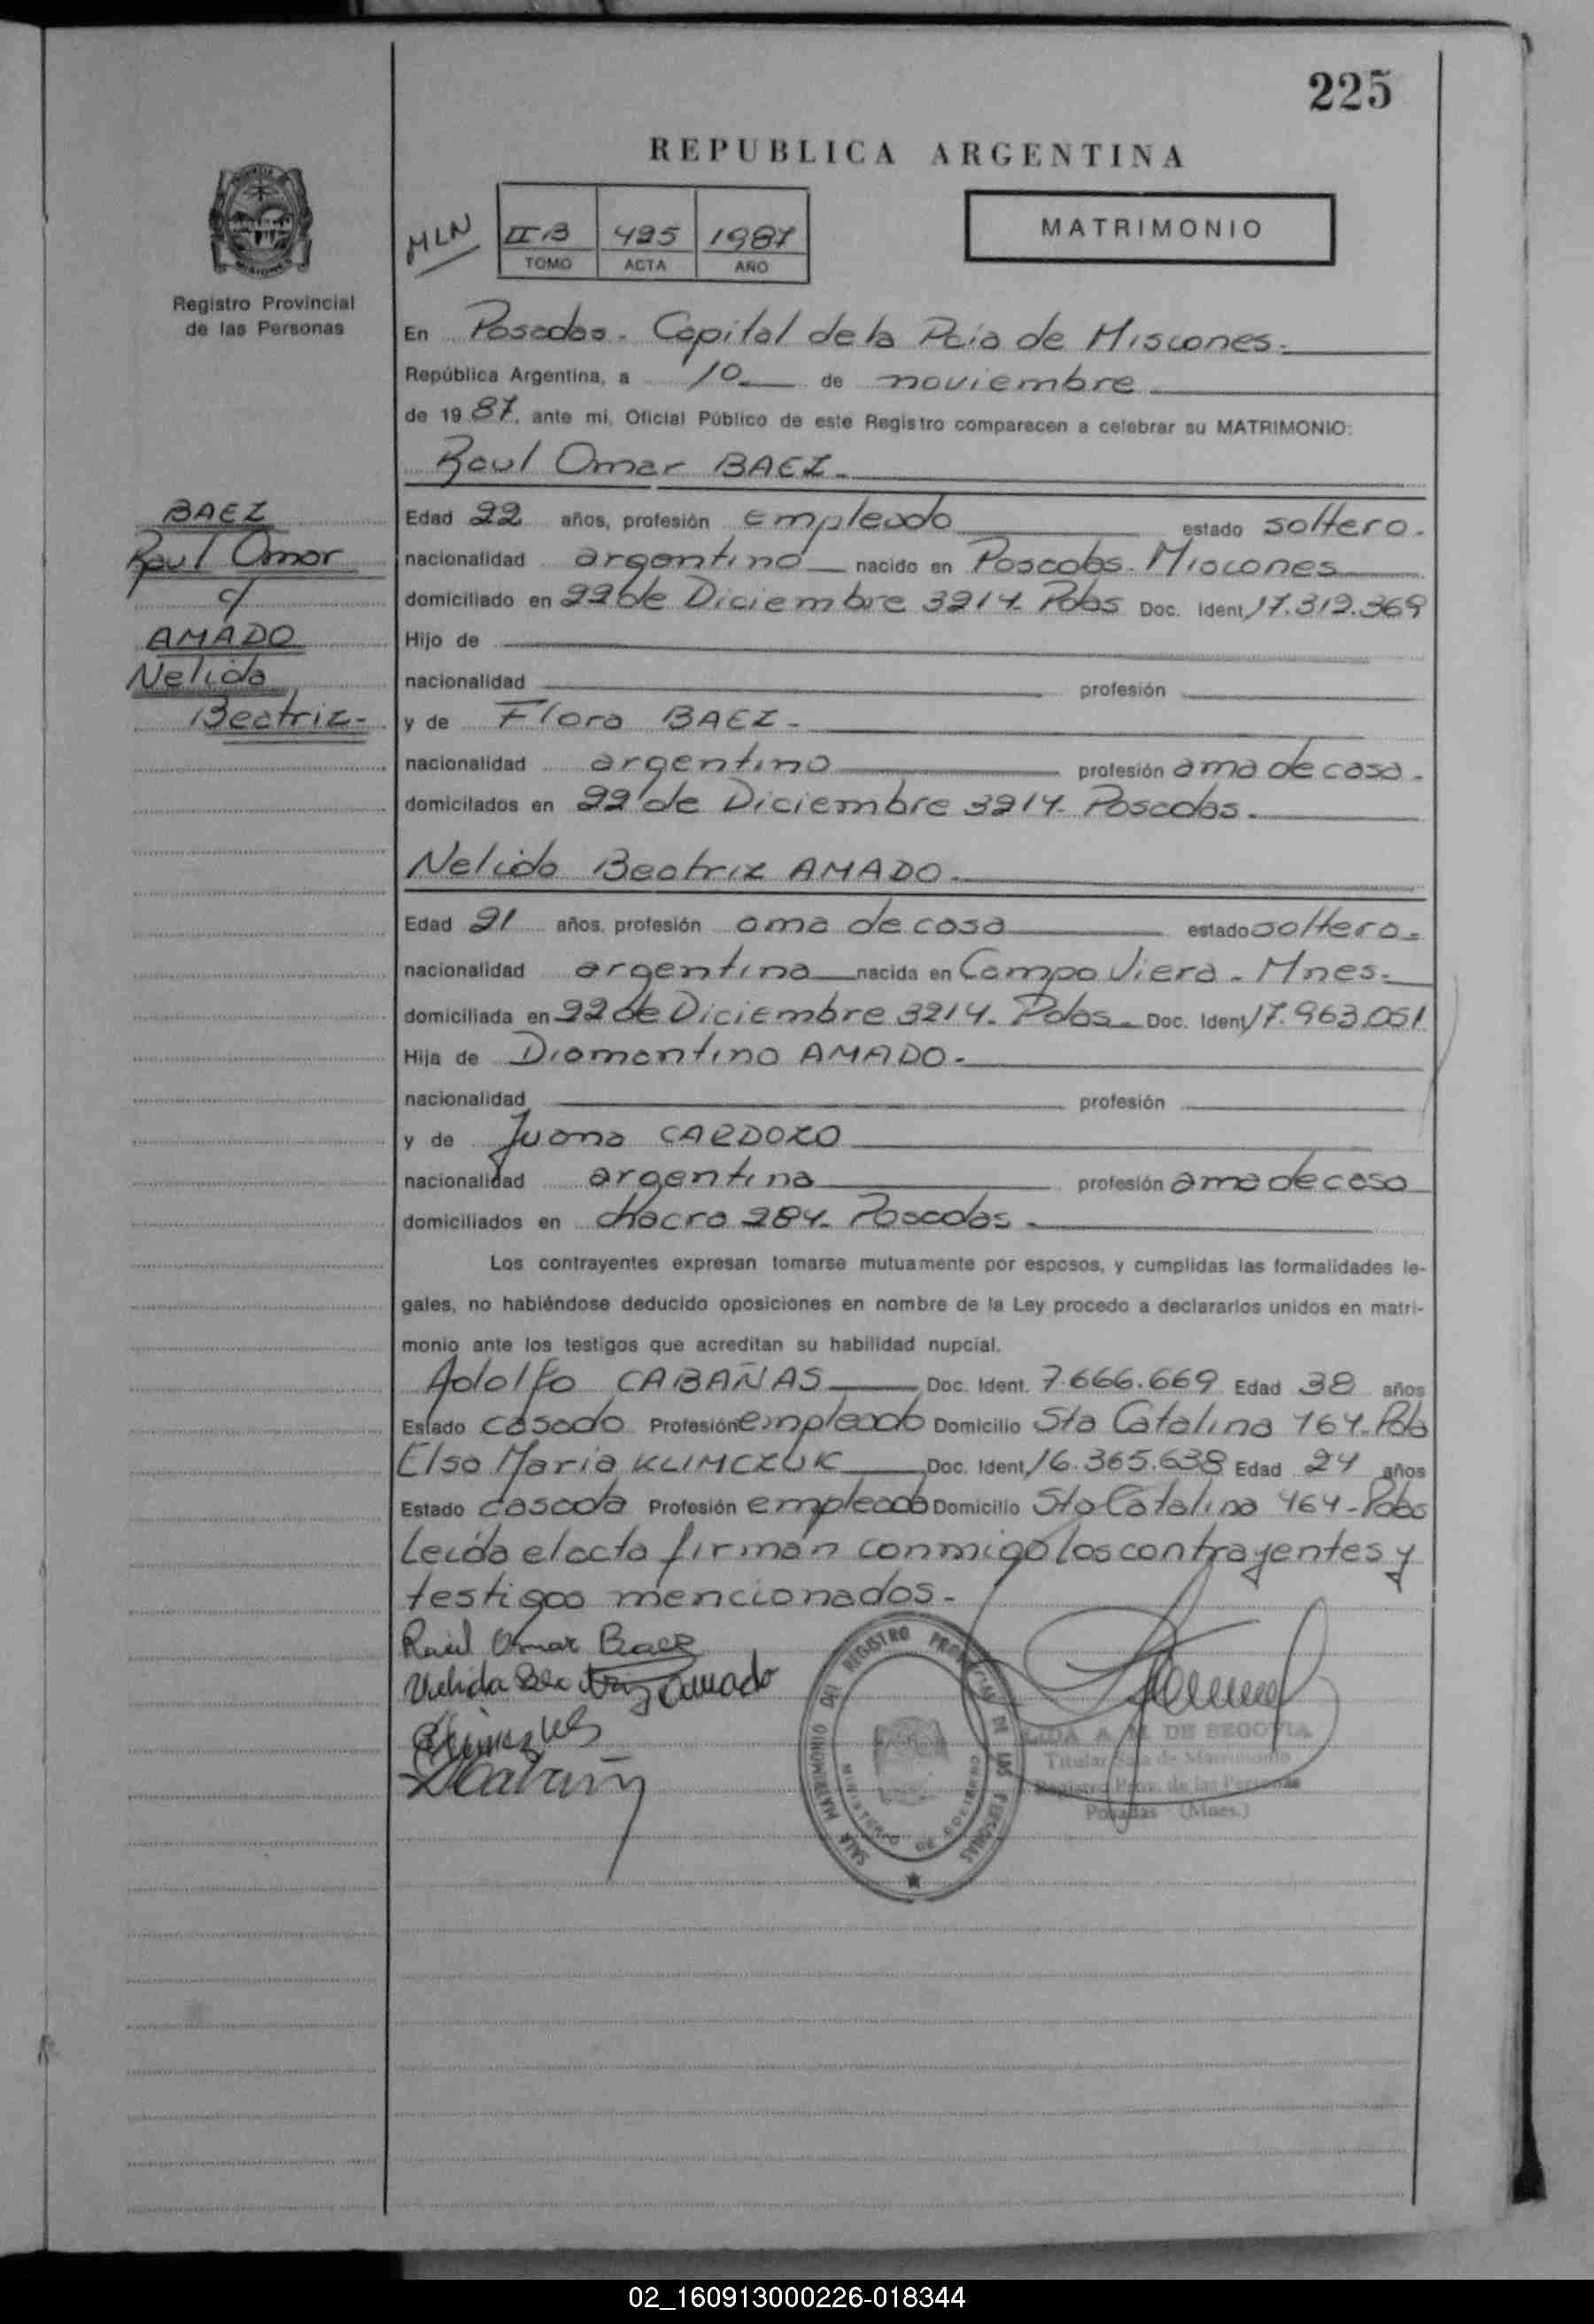 225
REPUBLICA ARGENTINA
MLN
II B 425 1987
TOMO ACTA AÑO
MATRIMONIO
Registro Provincial
de las Personas
En Posadas - Capital de la Pcia de Misiones.
República Argentina, a 10 de noviembre
de 1987, ante mi, Oficial Público de este Registro comparecen a celebrar su MATRIMONIO:
Raul Omar BAEZ
BAEZ
Raul Omar
c/
AMADO
Nelida
Beatriz-
Edad 22 años, profesión empleado estado soltero.
nacionalidad argentino nacido en Posadas. Misiones
domiciliado en 22 de Diciembre 3214. Pdas Doc. Ident. 17.312.369
Hijo de
nacionalidad profesión
y de Flora BAEZ-
nacionalidad argentina profesión ama de casa.
domicilados en 22 de Diciembre 3214. Posadas.
Nelida Beatriz AMADO.
Edad 21 años, profesión ama de casa estado soltera.
nacionalidad argentina nacida en Campo Viera - Mnes.
domiciliada en 22 de Diciembre 3214. Pdas. Doc. Ident. 17.963.051
Hija de Diamantino AMADO-
nacionalidad profesión
y de Juana CARDOZO
nacionalidad argentina profesión ama de casa
domiciliados en chacra 284. Posadas.
Los contrayentes expresan tomarse mutuamente por esposos, y cumplidas las formalidades le-
gales, no habiéndose deducido oposiciones en nombre de la Ley procedo a declararlos unidos en matri-
monio ante los testigos que acreditan su habilidad nupcial.
Adolfo CABAÑAS Doc. Ident. 7.666.669 Edad 38 años
Estado casado Profesión empleado Domicilio Sta Catalina 464. Pda
Elsa Maria KLIMCZUK Doc. Ident. 16.365.638 Edad 24 años
Estado casada Profesión empleada Domicilio Sta Catalina 464 - Pdas
Leída el acta firman conmigo los contrayentes y
testigos mencionados.-
Raúl Omar Baez
Nelida Beatriz Amado
SALA MATRIMONIO DEL REGISTRO PROVINCIAL DE LAS PERSONAS
MINISTERIO DE GOBIERNO
LIDA A. M. DE SEGOVIA
Titular Sala de Matrimonio
Registro Prov. de las Personas
Posadas (Mnes.)
02_160913000226-018344